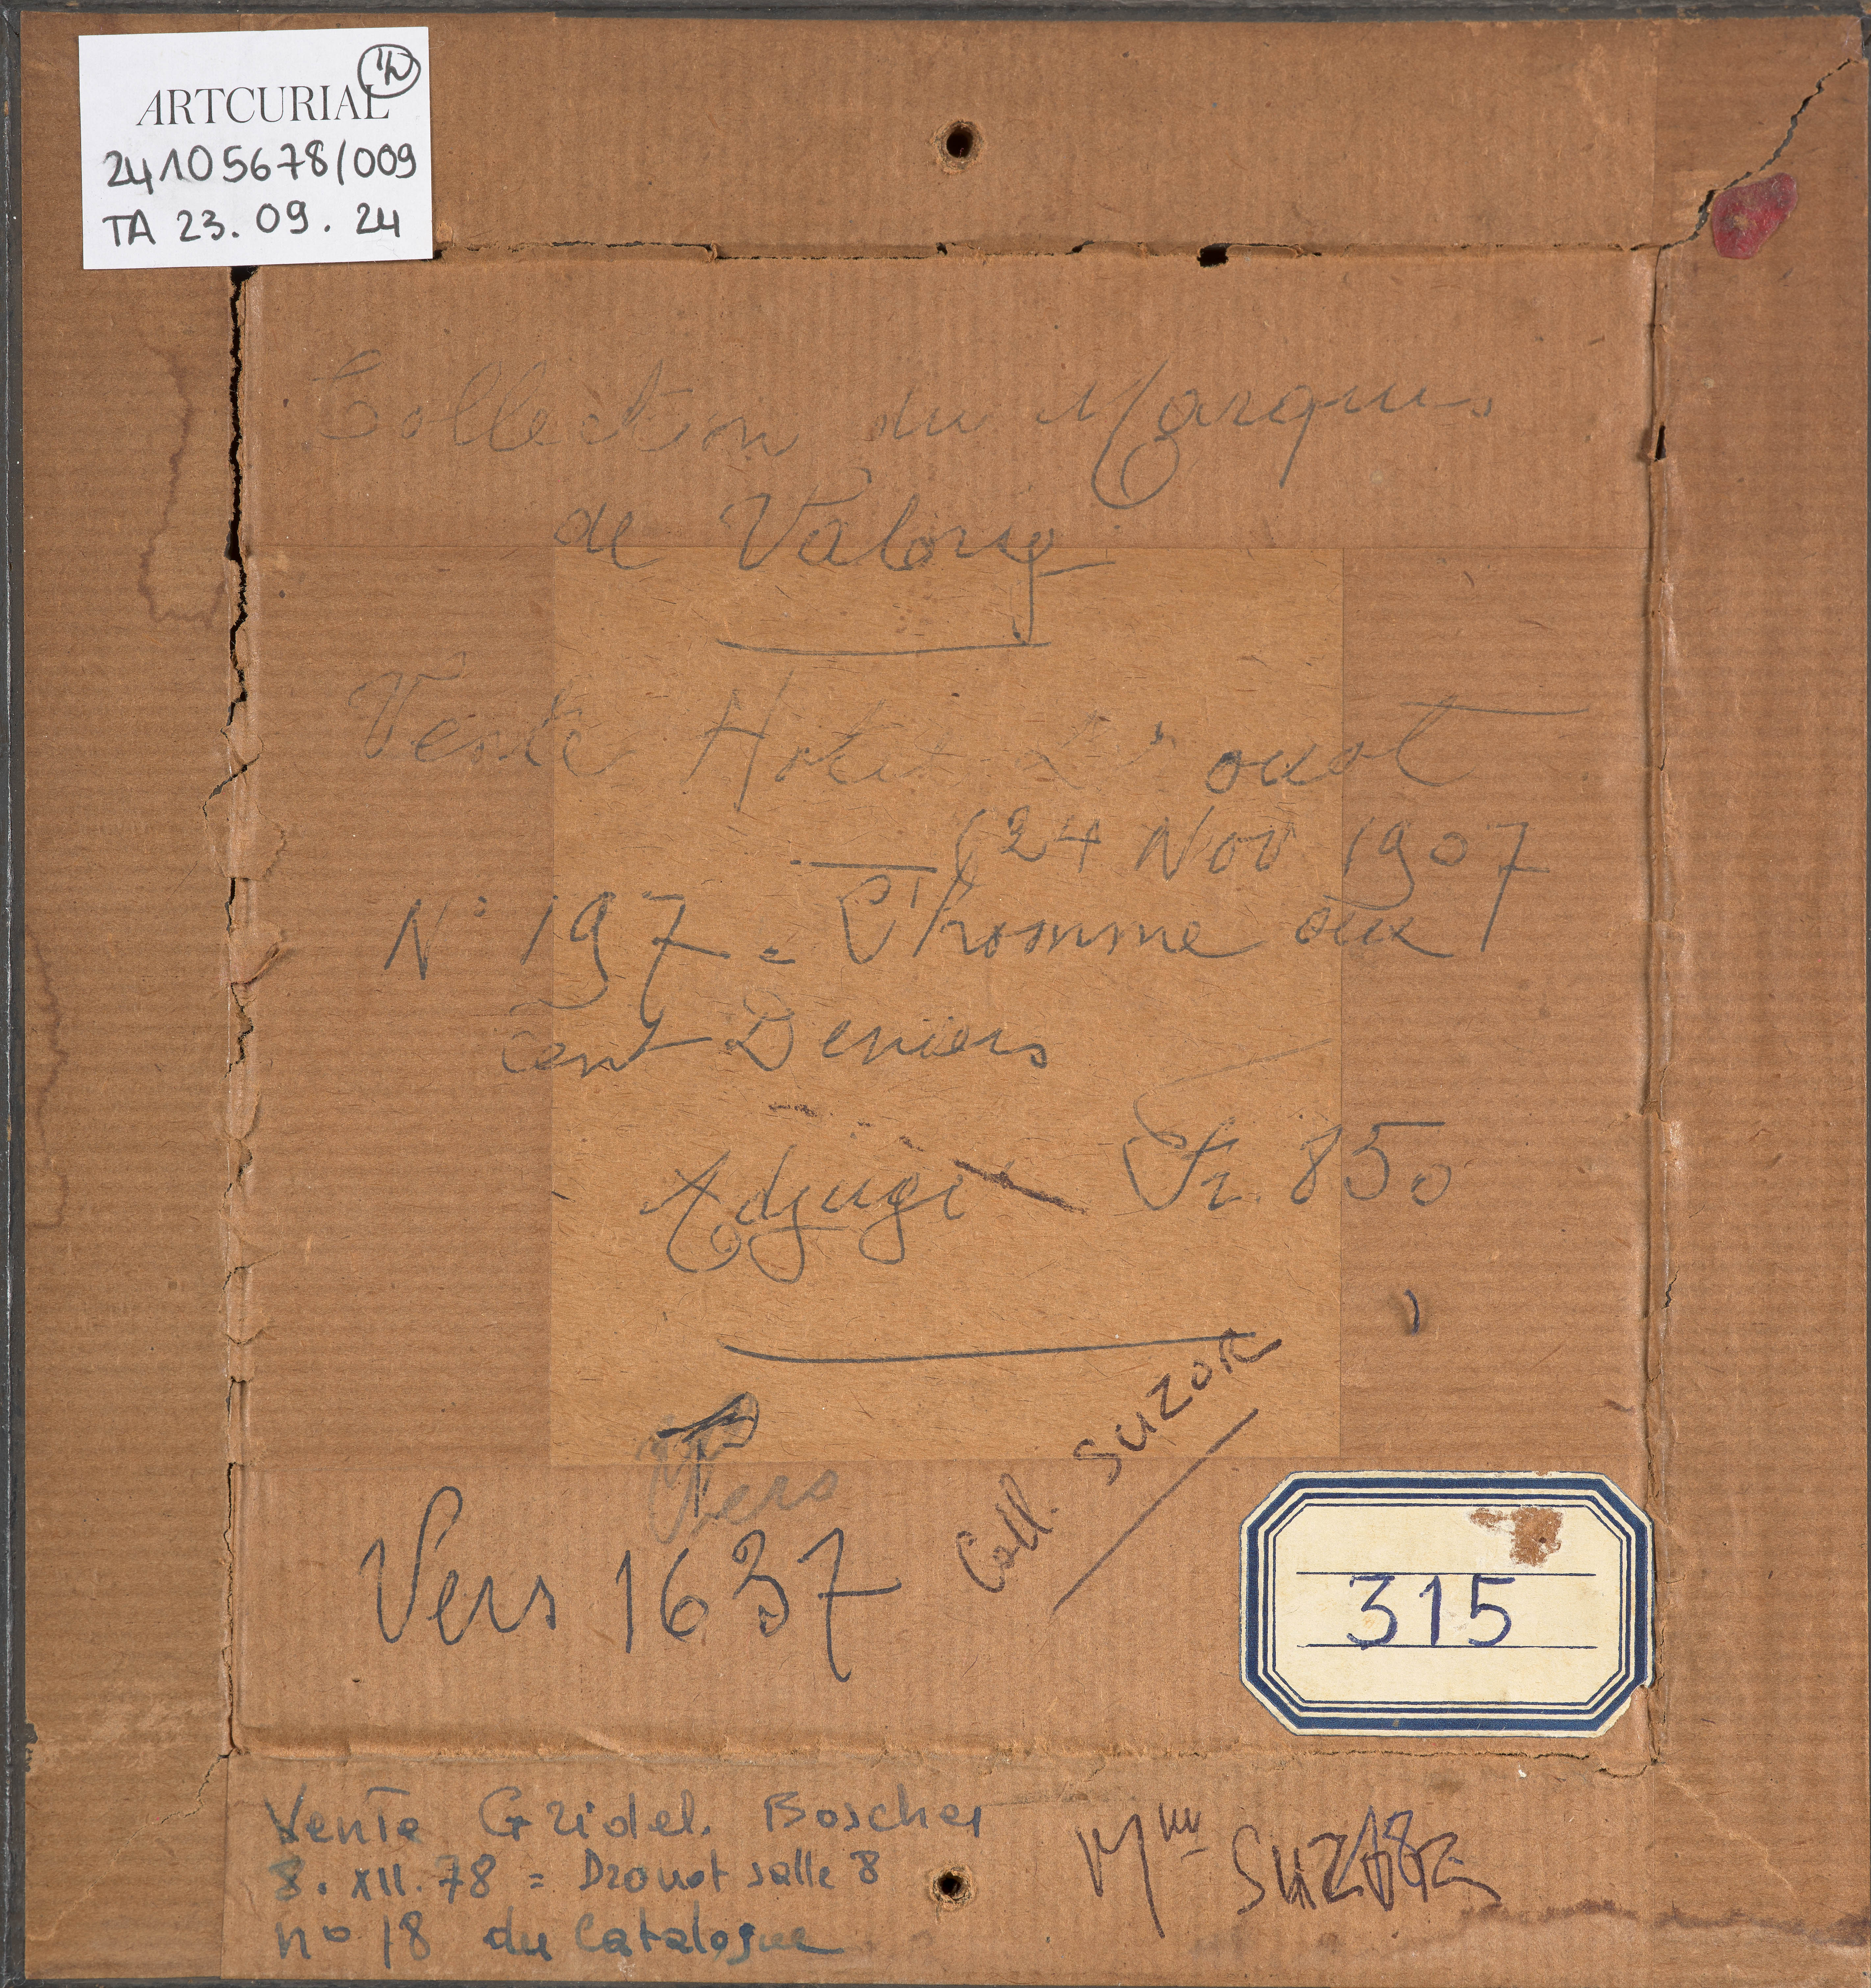 ARTCURIAL
24105678/009
TA 23.09.24
Collection du Marquis
de Valory
Vente Hotel Drouot
(24 Nov 1907
N° 197 = L'homme aux
Cent Deniers
Adjugé Fr. 850
Vers
Vers 1637
Coll. SUZOR
315
Vente Gridel. Boscher
8. XII. 78 = Drouot salle 8
n° 18 du Catalogue